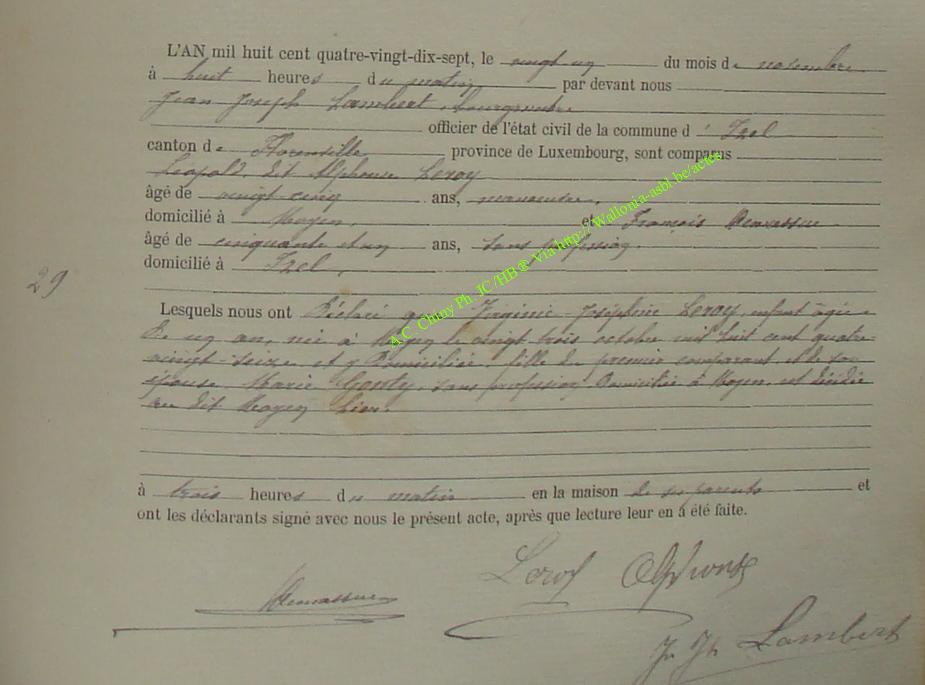 L'AN mil huit cent quatre-vingt-dix-sept, le vingt un du mois de novembre
à huit heures du matin par devant nous
Jean Joseph Lambert, bourgmestre
officier de l'état civil de la commune d' Izel
canton de Florenville province de Luxembourg, sont comparus
Léopold, dit Alphonse Leroy
âgé de vingt cinq ans, manœuvre,
domicilié à Moyen et François
âgé de cinquante et un ans, sans profession,
domicilié à Izel,
29
Lesquels nous ont déclaré que Virginie Joséphine Leroy, enfant âgée
de un an, née à Moyen le vingt trois octobre mil huit cent quatre
vingt seize et y domiciliée, fille du premier comparant et de son
épouse Marie, sans profession, domiciliée à Moyen, est décédée
au dit Moyen hier
à trois heures du matin en la maison de ses parents et
ont les déclarants signé avec nous le présent acte, après que lecture leur en a été faite.
Leroy Alphonse
J. Jh Lambert
A.C. Chiny Ph. JC/HB® Via http://Wallonia-asbl.be/actes